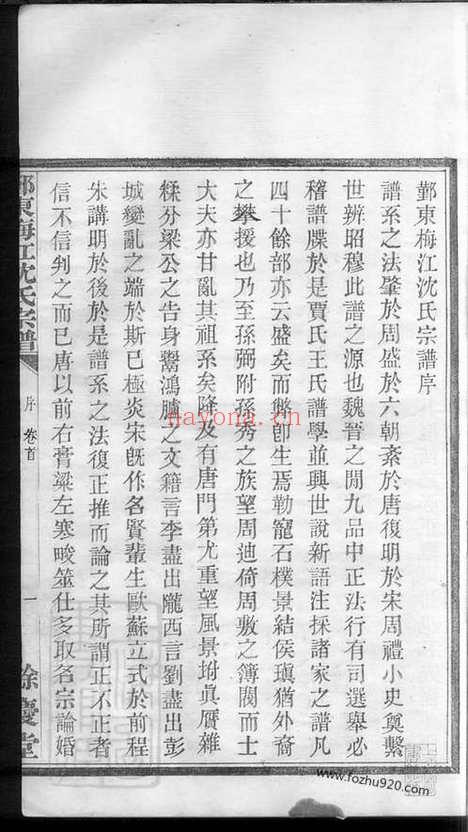 鄞東梅江沈氏宗譜序
譜系之法肇於周盛於六朝紊於唐復明於宋周禮小史奠繫
世辨昭穆此譜之源也魏晉之閒九品中正法行有司選舉必
稽譜牒於是賈氏王氏譜學並興世說新語注採諸家之譜凡
四十餘部亦云盛矣而獘卽生焉勒寵石樸景結侯瑱猶外裔
之攀援也乃至孫弼附孫秀之族望周迪倚周敷之簿閥而士
大夫亦甘亂其祖系矣隆及有唐門第尤重望風景坿眞贋雜
糅分梁公之告身鬻鴻臚之文籍言李盡出隴西言劉盡出彭
城變亂之端於斯巳極炎宋旣作名賢輩生歐蘇立式於前程
朱講明於後於是譜系之法復正推而論之其所謂正不正者
信不信判之而巳唐以前右膏粱左寒畯筮仕多取名宗論婚
鄞東梅江沈氏宗譜
序 卷首
一
餘慶堂
nayona.cn
www.fozhu920.com